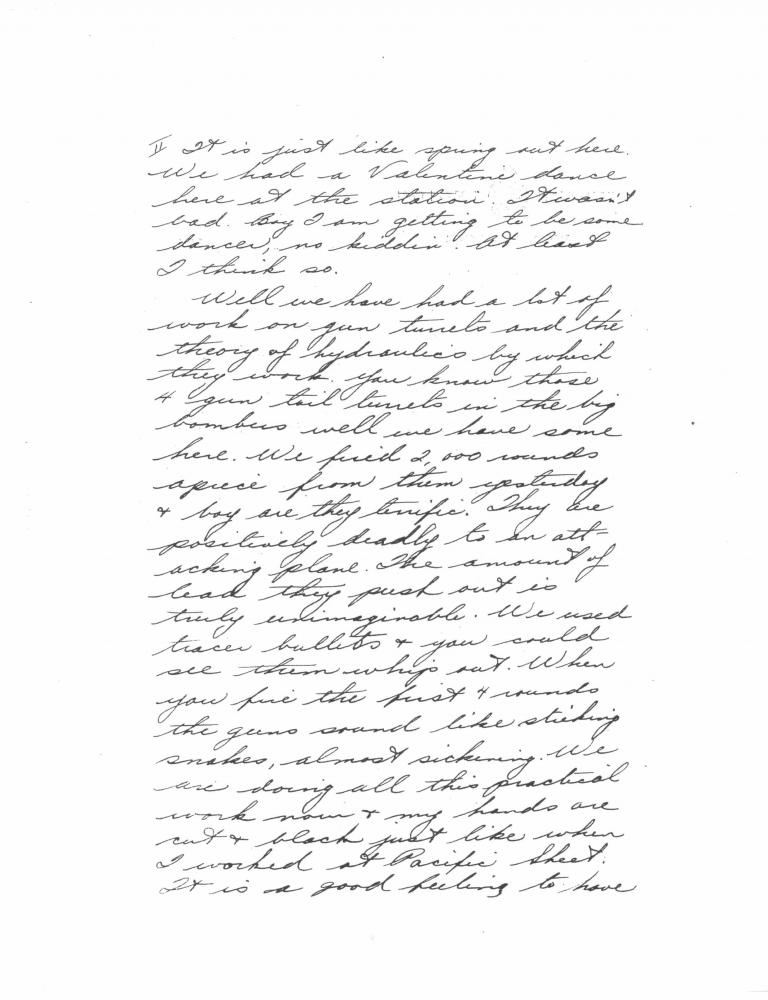 II It is just like spring out here.
We had a Valentine dance
here at the station. It wasn't
bad. Boy I am getting to be some
dancer, no kiddin'. At least
I think so.
Well we have had a lot of
work on gun turrets and the
theory of hydraulics by which
they work. You know those
4 gun tail turrets in the big
bombers well we have some
here. We fired 2,000 rounds
apiece from them yesterday
& boy are they terrific. They are
positively deadly to an att-
acking plane. The amount of
lead they push out is
truly unimaginable. We used
tracer bullets & you could
see them whip out. When
you fire the first 4 rounds
the guns sound like striking
snakes, almost sickening. We
are doing all this practical
work now & my hands are
cut & black just like when
I worked at Pacific Sheet.
It is a good feeling to have